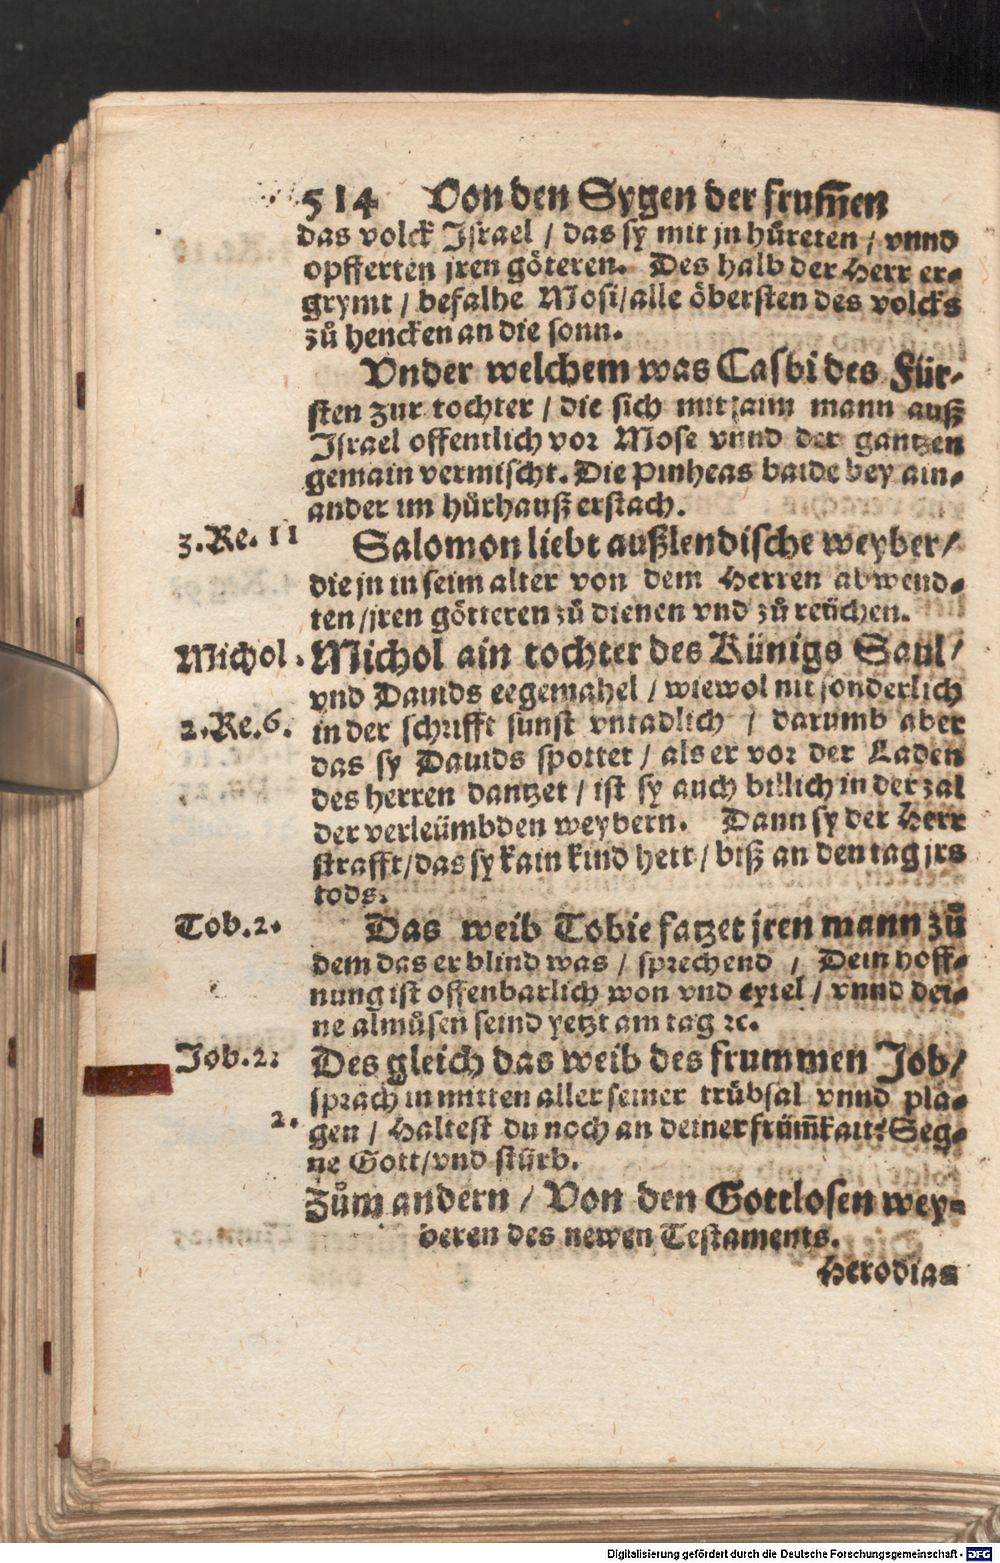 514 Von den Sygen der frum̃en
das volck Israel / das sy mit jn hůreten / vnnd
opfferten jren göteren. Des halb der Herr er-
grymt / befalhe Mosi/alle öbersten des volcks
zů hencken an die sonn.
Vnder welchem was Casbi des Für-
sten zur tochter / die sich mit ainn mann auß
Israel offentlich vor Mose vnnd der gantzen
gemain vermischt. Die Pinheas baide bey ain-
ander im hůrhauß erstach.
3.Re. 11 Salomon liebt außlendische weyber/
die jn in seim alter von dem Herren abwend-
ten/jren götteren zů dienen vnd zů reüchen.
Michol. Michol ain tochter des Künigs Saul/
vnd Dauids eegemahel / wiewol nit sonderlich
2.Re.6. in der schrifft sunst vntadlich / darumb aber
das sy Dauids spottet / als er vor der Laden
des herren dantzet / ist sy auch billich in der zal
der verleümbden weybern. Dann sy der Herr
strafft/das sy kain kind hett/biß an den tag jrs
tods.
Tob.2. Das weib Tobie fatzet jren mann zů
dem das er blind was / sprechend / Dein hoff-
nung ist offenbarlich won vnd eytel / vnnd dei-
ne almůsen seind yetzt am tag ꝛc.
Job.2: Des gleich das weib des frummen Job/
sprach in mitten aller seiner trübsal vnnd pla-
2. gen / Haltest du noch an deiner frům̃kait? Seg-
ne Gott/vnd stürb.
Zům andern / Von den Gottlosen wey-
beren des newen Testaments.
Herodias
Digitalisierung gefördert durch die Deutsche Forschungsgemeinschaft - DFG